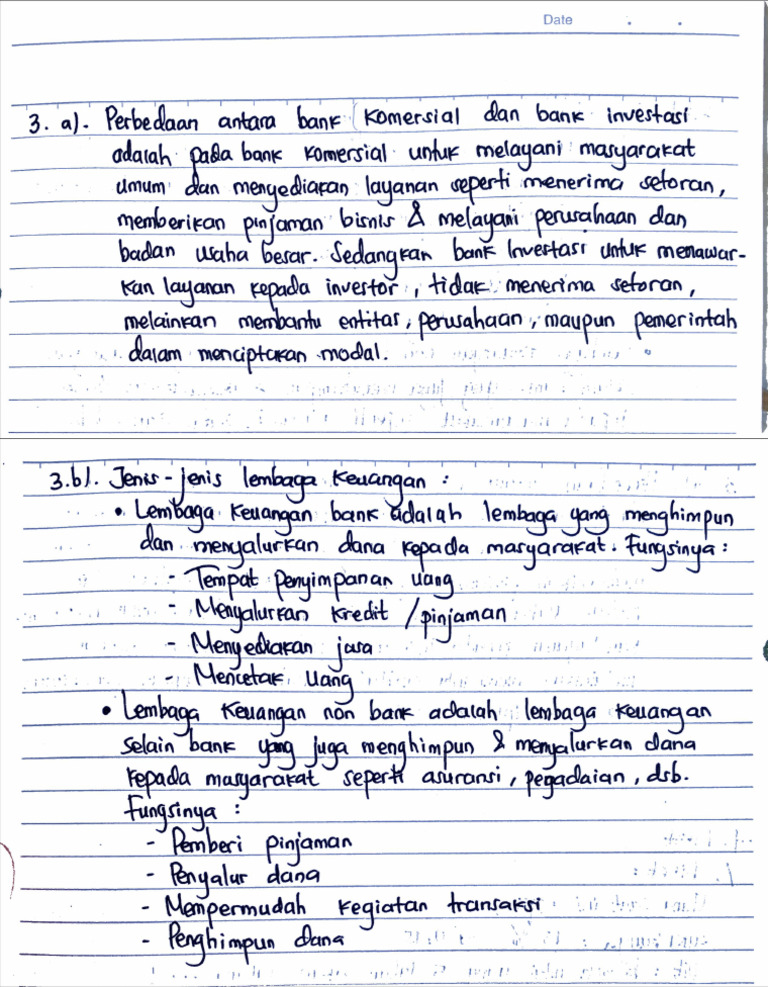 Date
3. a). Perbedaan antara bank komersial dan bank investasi
adalah pada bank komersial untuk melayani masyarakat
umum dan menyediakan layanan seperti menerima setoran,
memberikan pinjaman bisnis & melayani perusahaan dan
badan usaha besar. Sedangkan bank Investasi untuk menawar-
kan layanan kepada investor, tidak menerima setoran,
melainkan membantu entitas, perusahaan, maupun pemerintah
dalam menciptakan modal.
3.b). Jenis-jenis lembaga keuangan :
• Lembaga keuangan bank adalah lembaga yang menghimpun
dan menyalurkan dana kepada masyarakat. Fungsinya :
- Tempat penyimpanan uang
- Menyalurkan kredit / pinjaman
- Menyediakan jasa
- Mencetak uang
• Lembaga keuangan non bank adalah lembaga keuangan
selain bank yang juga menghimpun & menyalurkan dana
kepada masyarakat seperti asuransi, pegadaian, dsb.
Fungsinya :
- Pemberi pinjaman
- Penyalur dana
- Mempermudah kegiatan transaksi
- Penghimpun dana